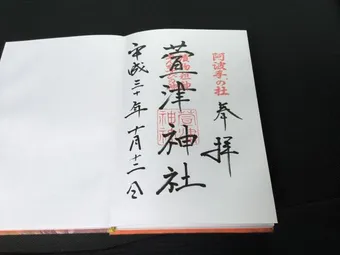 阿波手の社
奉拝
萱津神社
萱津
神社
平成三十年十月十二日